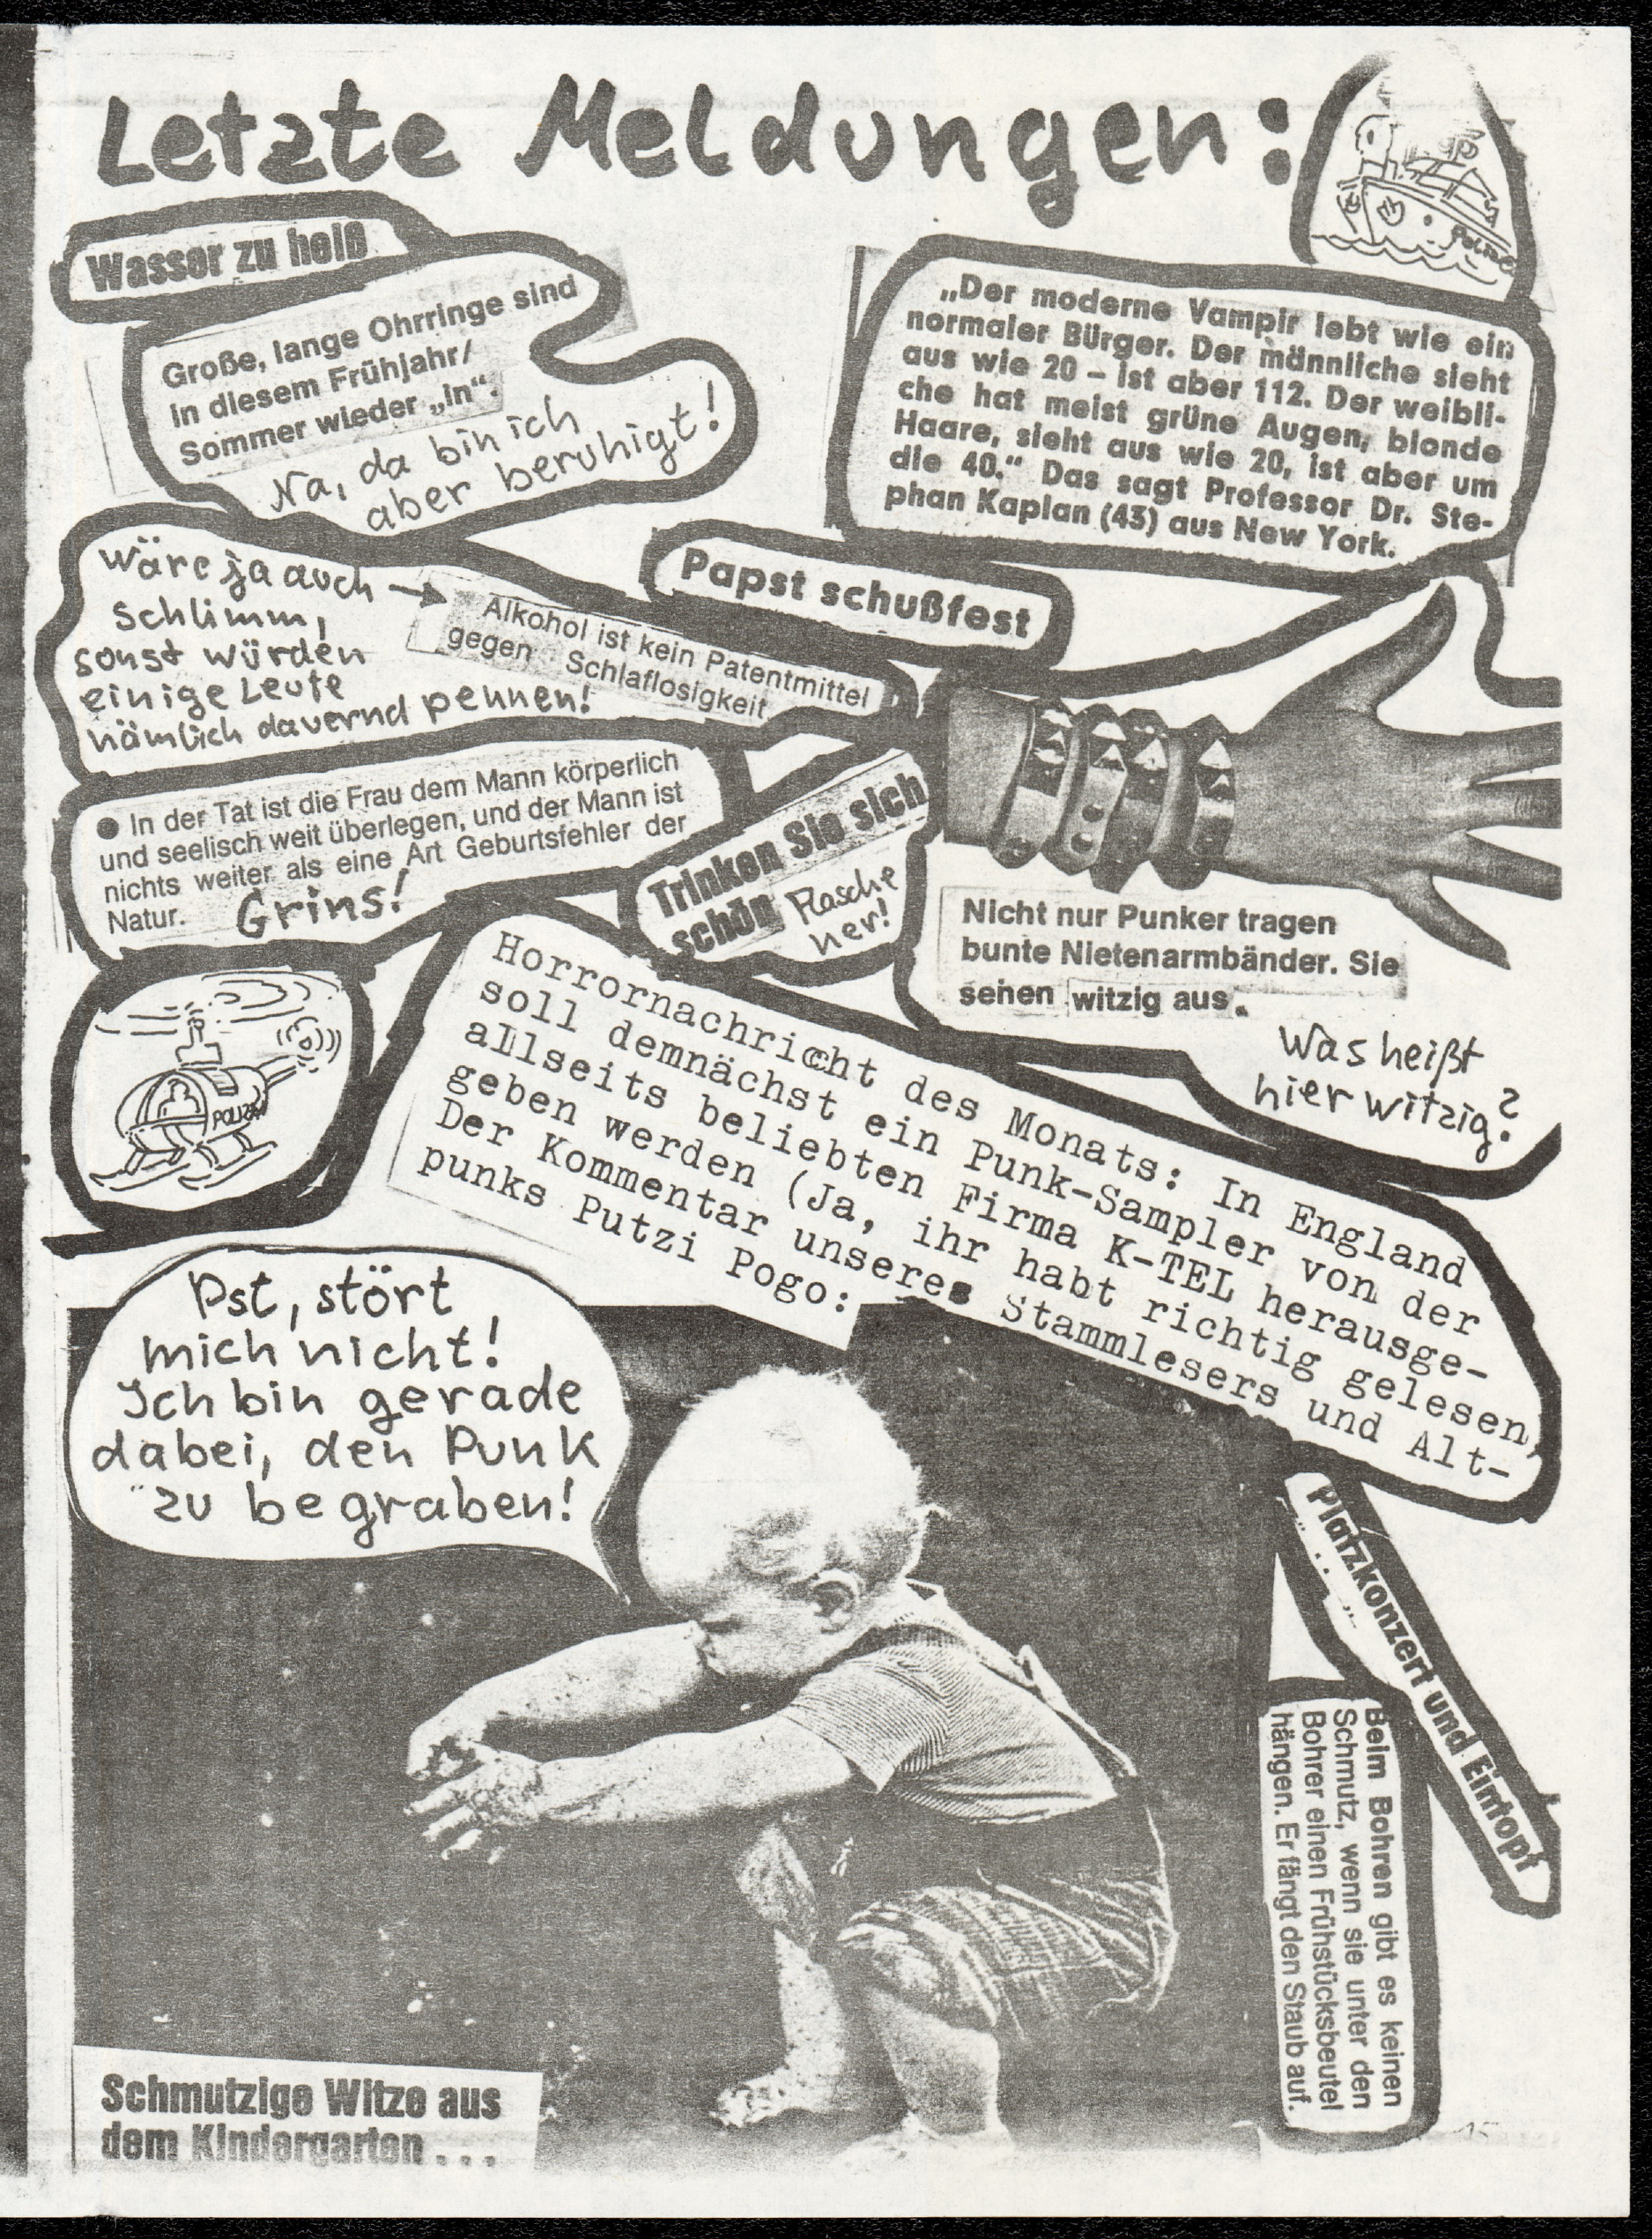 Letzte Meldungen:
Polizei
Wasser zu heiß
Große, lange Ohrringe sind
in diesem Frühjahr/
Sommer wieder „in“.
Na, da bin ich
aber beruhigt!
„Der moderne Vampir lebt wie ein
normaler Bürger. Der männliche sieht
aus wie 20 – ist aber 112. Der weibli-
che hat meist grüne Augen, blonde
Haare, sieht aus wie 20, ist aber um
die 40.“ Das sagt Professor Dr. Ste-
phan Kaplan (43) aus New York.
Papst schußfest
Wäre ja auch →
schlimm,
sonst würden
einige Leute
nämlich dauernd pennen!
Alkohol ist kein Patentmittel
gegen Schlaflosigkeit
● In der Tat ist die Frau dem Mann körperlich
und seelisch weit überlegen, und der Mann ist
nichts weiter als eine Art Geburtsfehler der
Natur.
Grins!
Trinken Sie sich
schön
Flasche
her!
Nicht nur Punker tragen
bunte Nietenarmbänder. Sie
sehen witzig aus.
Was heißt
hier witzig?
POLIZEI
Horrornachricht des Monats: In England
soll demnächst ein Punk-Sampler von der
allseits beliebten Firma K-TEL herausge-
geben werden (Ja, ihr habt richtig gelesen,
Der Kommentar unseres Stammlesers und Alt-
punks Putzi Pogo:
Pst, stört
mich nicht!
Ich bin gerade
dabei, den Punk
zu begraben!
Platzkonzert und Eintopf
Beim Bohren gibt es keinen
Schmutz, wenn sie unter den
Bohrer einen Frühstücksbeutel
hängen. Er fängt den Staub auf.
Schmutzige Witze aus
dem Kindergarten . . .
15